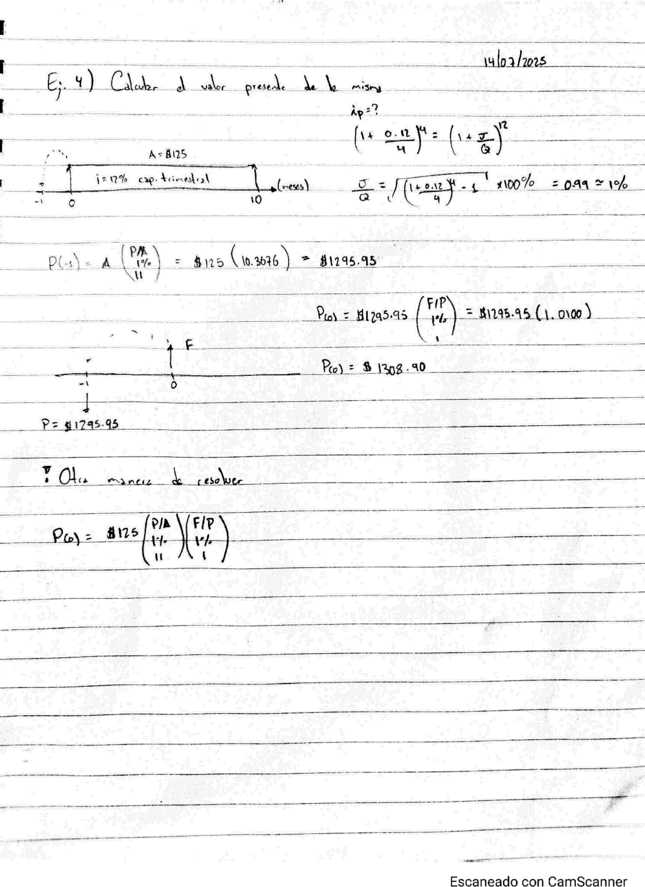 14/07/2025
Ej. 4) Calcular el valor presente de la misma
ip=?
(1 + 0.12/4)^4 = (1 + J/Q)^12
A = $125
i = 12% cap. trimestral
(meses)
-1 0 10
J/Q = √((1+0.12/4)^4 - 1) x100% = 0.99 ≃ 1%
P(-1) = A (P/A 1% 11) = $125 (10.3676) = $1295.95
P(0) = $1295.95 (F/P 1% 1) = $1295.95 (1.0100)
F
P(0) = $ 1308.90
-1 0
P = $1295.95
Otra manera de resolver
P(0) = $125 (P/A 1% 11)(F/P 1% 1)
Escaneado con CamScanner